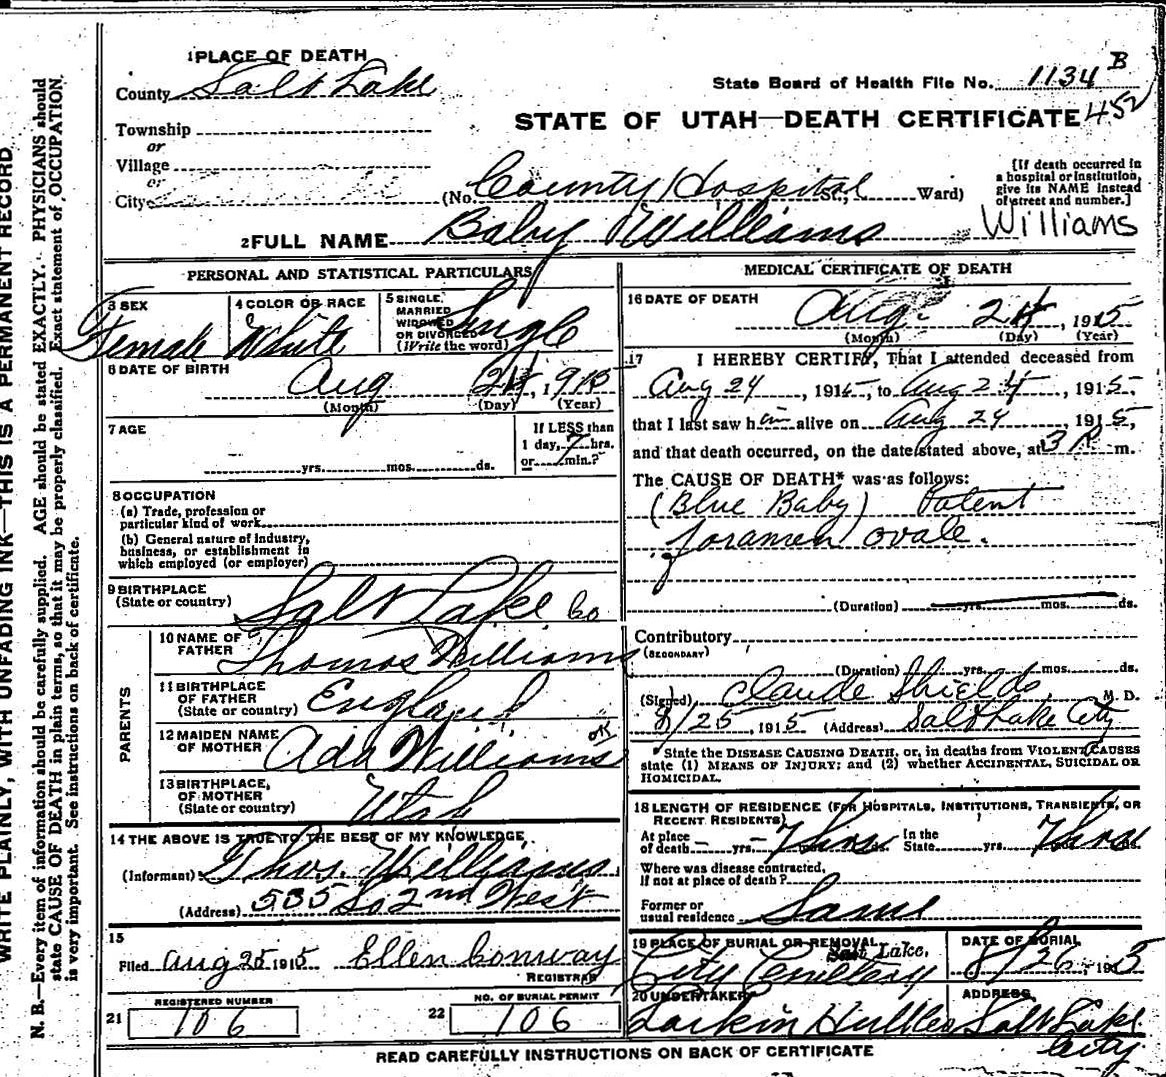 1 PLACE OF DEATH
County Salt Lake
State Board of Health File No. 1134 B
STATE OF UTAH—DEATH CERTIFICATE 452
Township
or
Village
or
City
(No. County Hospital St., Ward)
[If death occurred in
a hospital or institution,
give its NAME instead
of street and number.]
2 FULL NAME Baby Williams
Williams
PERSONAL AND STATISTICAL PARTICULARS
3 SEX
Female
4 COLOR OR RACE
White
5 SINGLE,
MARRIED
WIDOWED
OR DIVORCED
(Write the word)
Single
6 DATE OF BIRTH
Aug 24, 1915
(Month) (Day) (Year)
7 AGE
yrs. mos. ds.
If LESS than
1 day, 7 hrs.
or min.?
8 OCCUPATION
(a) Trade, profession or
particular kind of work
(b) General nature of industry,
business, or establishment in
which employed (or employer)
9 BIRTHPLACE
(State or country)
Salt Lake Co
PARENTS
10 NAME OF
FATHER
Thomas Williams
11 BIRTHPLACE
OF FATHER
(State or country)
England
12 MAIDEN NAME
OF MOTHER
Ada Williams ok
13 BIRTHPLACE,
OF MOTHER
(State or country)
Utah
14 THE ABOVE IS TRUE TO THE BEST OF MY KNOWLEDGE
(Informant) Thos. Williams
(Address) 535 So 2nd West
15
Filed Aug 25 1915 Ellen Conway
REGISTRAR
REGISTERED NUMBER
21 106
NO. OF BURIAL PERMIT
22 106
MEDICAL CERTIFICATE OF DEATH
16 DATE OF DEATH
Aug 24, 1915
(Month) (Day) (Year)
17 I HEREBY CERTIFY, That I attended deceased from
Aug 24, 1915, to Aug 24, 1915,
that I last saw h im alive on Aug 24, 1915,
and that death occurred, on the date stated above, at 3 P. m.
The CAUSE OF DEATH* was as follows:
(Blue Baby) Patent
foramen ovale.
(Duration) yrs. mos. ds.
Contributory
(SECONDARY)
(Duration) yrs. mos. ds.
(Signed) Claude Shields, M. D.
8/25, 1915 (Address) Salt Lake City
*State the DISEASE CAUSING DEATH, or, in deaths from VIOLENT CAUSES
state (1) MEANS OF INJURY; and (2) whether ACCIDENTAL, SUICIDAL OR
HOMICIDAL.
18 LENGTH OF RESIDENCE (FOR HOSPITALS, INSTITUTIONS, TRANSIENTS, OR
RECENT RESIDENTS)
At place
of death — yrs. 7 hrs ds. In the
State yrs. 7 hrs
Where was disease contracted,
if not at place of death?
Former or
usual residence Same
19 PLACE OF BURIAL OR REMOVAL
Salt Lake,
City Cemetery
DATE OF BURIAL
8/26, 1915
20 UNDERTAKER
Larkin Hull
ADDRESS
Salt Lake
City
READ CAREFULLY INSTRUCTIONS ON BACK OF CERTIFICATE
WRITE PLAINLY, WITH UNFADING INK—THIS IS A PERMANENT RECORD
N. B.—Every item of information should be carefully supplied. AGE should be stated EXACTLY. PHYSICIANS should
state CAUSE OF DEATH in plain terms, so that it may be properly classified. Exact statement of OCCUPATION
is very important. See instructions on back of certificate.